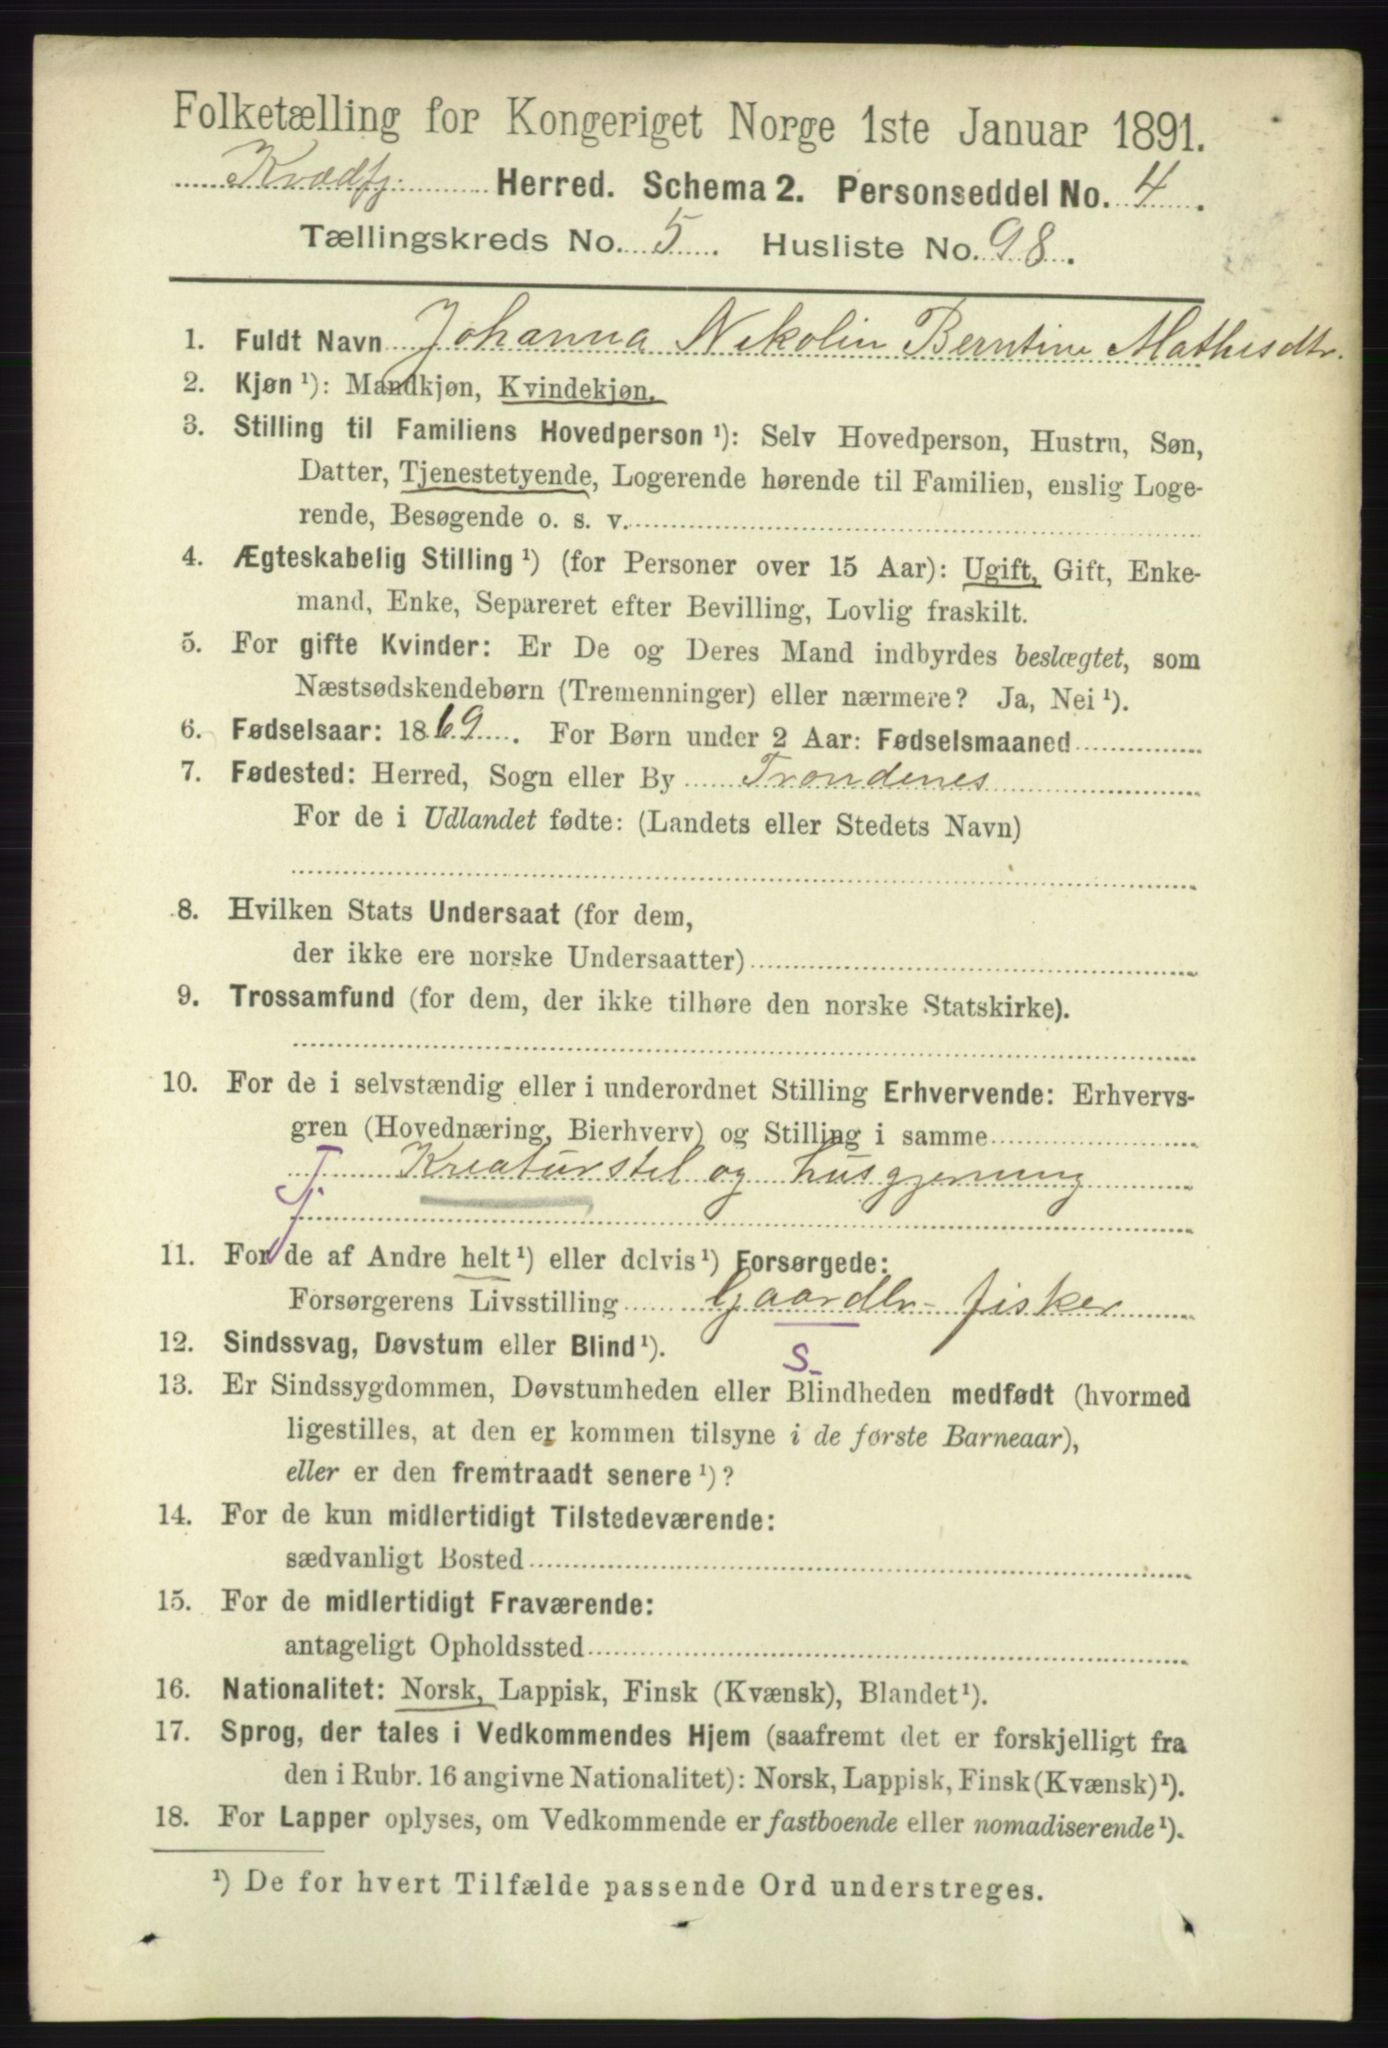 Folketælling for Kongeriget Norge 1ste Januar 1891.
Kvædfj. Herred. Schema 2. Personseddel No. 4.
Tællingskreds No. 5. Husliste No. 98.
1. Fuldt Navn Johanna Nikolin Berntine Mathisdtr.
2. Kjøn ¹): Mandkjøn, Kvindekjøn.
3. Stilling til Familiens Hovedperson ¹): Selv Hovedperson, Hustru, Søn,
Datter, Tjenestetyende, Logerende hørende til Familien, enslig Loge-
rende, Besøgende o. s. v.
4. Ægteskabelig Stilling ¹) (for Personer over 15 Aar): Ugift, Gift, Enke-
mand, Enke, Separeret efter Bevilling, Lovlig fraskilt.
5. For gifte Kvinder: Er De og Deres Mand indbyrdes beslægtet, som
Næstsødskendebørn (Tremenninger) eller nærmere? Ja, Nei ¹).
6. Fødselsaar: 1869. For Børn under 2 Aar: Fødselsmaaned
7. Fødested: Herred, Sogn eller By Trondenes
For de i Udlandet fødte: (Landets eller Stedets Navn)
8. Hvilken Stats Undersaat (for dem,
der ikke ere norske Undersaatter)
9. Trossamfund (for dem, der ikke tilhøre den norske Statskirke).
10. For de i selvstændig eller i underordnet Stilling Erhvervende: Erhvervs-
gren (Hovednæring, Bierhverv) og Stilling i samme
Tj. Kreaturstel og husgjerning
11. For de af Andre helt ¹) eller delvis ¹) Forsørgede:
Forsørgerens Livsstilling Gaardbr- fisker
S.
12. Sindssvag, Døvstum eller Blind ¹).
13. Er Sindssygdommen, Døvstumheden eller Blindheden medfødt (hvormed
ligestilles, at den er kommen tilsyne i de første Barneaar),
eller er den fremtraadt senere ¹)?
14. For de kun midlertidigt Tilstedeværende:
sædvanligt Bosted
15. For de midlertidigt Fraværende:
antageligt Opholdssted
16. Nationalitet: Norsk, Lappisk, Finsk (Kvænsk), Blandet ¹).
17. Sprog, der tales i Vedkommendes Hjem (saafremt det er forskjelligt fra
den i Rubr. 16 angivne Nationalitet): Norsk, Lappisk, Finsk (Kvænsk) ¹).
18. For Lapper oplyses, om Vedkommende er fastboende eller nomadiserende ¹).
¹) De for hvert Tilfælde passende Ord understreges.